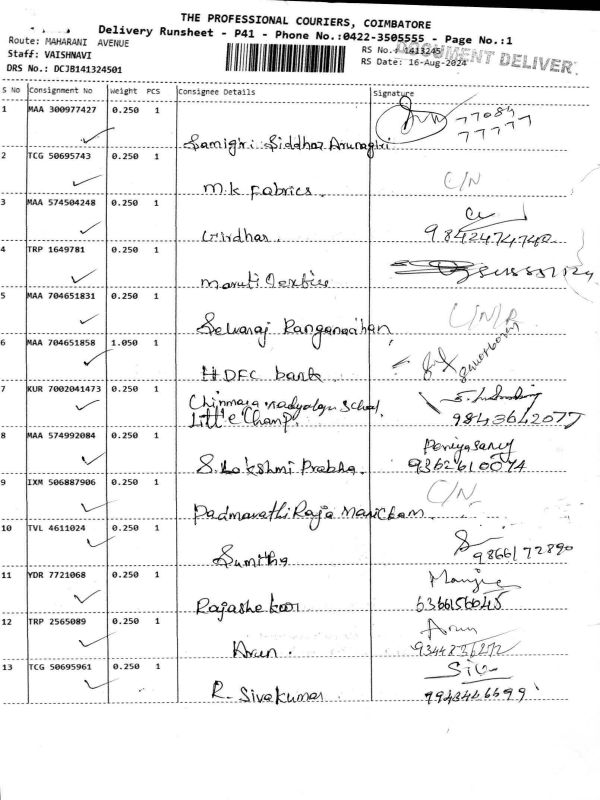 THE PROFESSIONAL COURIERS, COIMBATORE
Delivery Runsheet - P41 - Phone No.:0422-3505555 - Page No.:1
Route: MAHARANI AVENUE
RS No.: 1413245
DOCUMENT DELIVER
Staff: VAISHNAVI
RS Date: 16-Aug-2024
DRS No.: DCJB141324501
S No Consignment No Weight PCS Consignee Details Signature
1 MAA 300977427 0.250 1
77084
77777
Samigiri Siddhar Arunagiri
2 TCG 50695743 0.250 1
C/N
M.K Fabrics.
3 MAA 574504248 0.250 1
Girdhar. 9842474740
4 TRP 1649781 0.250 1
Maruti Textiles
5 MAA 704651831 0.250 1
Selvaraj Ranganathan
6 MAA 704651858 1.050 1
HDFC bank
7 KUR 7002041473 0.250 1
Chinmaya vidyalaya school
Little Champ. 9843642077
8 MAA 574992084 0.250 1
Periyasamy
S. Lakshmi Prabha. 9362610074
9 IXM 506887906 0.250 1
C/N
Padmavathi Raja Manickam.
10 TVL 4611024 0.250 1
Sumitha 9866172890
11 YDR 7721068 0.250 1
Rajashekar 6366156645
12 TRP 2565089 0.250 1
Arun
Arun. 9344836272
13 TCG 50695961 0.250 1
Siva
R. Sivakumar 9943446699